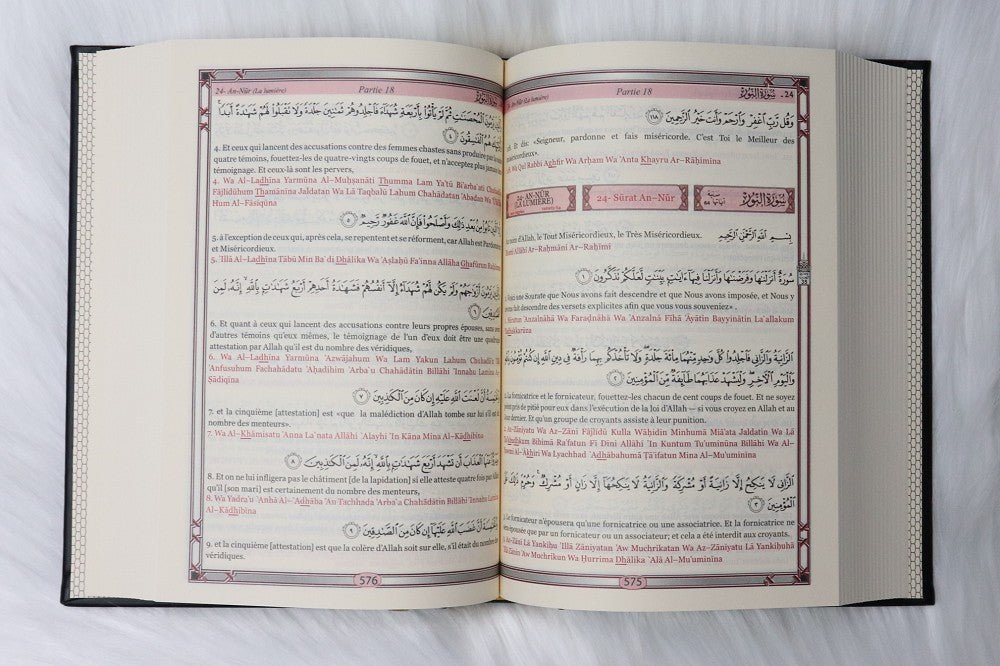 سورة النور - 24
Partie 18
An-Nûr (La lumière)
وَقُل رَّبِّ ٱغْفِرْ وَٱرْحَمْ وَأَنتَ خَيْرُ ٱلرَّٰحِمِينَ ١١٨
dis: «Seigneur, pardonne et fais miséricorde. C'est Toi le Meilleur des
miséricordieux».
Wa Qul Rabbi Aghfir Wa Arĥam Wa 'Anta Khayru Ar–Rāĥimīna
سورة النور
24- Sūrat An–Nūr
24- AN-NŪR
(LA LUMIÈRE)
بِسْمِ ٱللَّهِ ٱلرَّحْمَٰنِ ٱلرَّحِيمِ
nom d'Allah, le Tout Miséricordieux, le Très Miséricordieux.
Allāhi Ar–Raĥmāni Ar–Raĥīmi
سُورَةٌ أَنزَلْنَٰهَا وَفَرَضْنَٰهَا وَأَنزَلْنَا فِيهَآ ءَايَٰتٍۭ بَيِّنَٰتٍ لَّعَلَّكُمْ تَذَكَّرُونَ ١
une Sourate que Nous avons fait descendre et que Nous avons imposée, et Nous y
avons fait descendre des versets explicites afin que vous vous souveniez» .
'Anzalnāhā Wa Farađnāhā Wa 'Anzalnā Fīhā 'Āyātin Bayyinātin La`allakum
Tadhakkarūna
ٱلزَّانِيَةُ وَٱلزَّانِى فَٱجْلِدُوا۟ كُلَّ وَٰحِدٍ مِّنْهُمَا مِا۟ئَةَ جَلْدَةٍ وَلَا تَأْخُذْكُم بِهِمَا رَأْفَةٌ فِى دِينِ ٱللَّهِ إِن كُنتُمْ تُؤْمِنُونَ بِٱللَّهِ
وَٱلْيَوْمِ ٱلْءَاخِرِ وَلْيَشْهَدْ عَذَابَهُمَا طَآئِفَةٌ مِّنَ ٱلْمُؤْمِنِينَ ٢
La fornicatrice et le fornicateur, fouettez-les chacun de cent coups de fouet. Et ne soyez
point pris de pitié pour eux dans l'exécution de la loi d'Allah – si vous croyez en Allah et au
Jour dernier. Et qu'un groupe de croyants assiste à leur punition.
Az–Zāniyatu Wa Az–Zānī Fājlidū Kulla Wāĥidin Minhumā Miā'ata Jaldatin Wa Lā
Ta'khudhkum Bihimā Ra'fatun Fī Dīni Allāhi 'In Kuntum Tu'uminūna Billāhi Wa Al–
Yawmi Al–Ākhiri Wa Lyachhad `Adhābahumā Ţā'ifatun Mina Al–Mu'uminīna
ٱلزَّانِى لَا يَنكِحُ إِلَّا زَانِيَةً أَوْ مُشْرِكَةً وَٱلزَّانِيَةُ لَا يَنكِحُهَآ إِلَّا زَانٍ أَوْ مُشْرِكٌ وَحُرِّمَ ذَٰلِكَ عَلَى
ٱلْمُؤْمِنِينَ ٣
Le fornicateur n'épousera qu'une fornicatrice ou une associatrice. Et la fornicatrice ne
sera épousée que par un fornicateur ou un associateur; et cela a été interdit aux croyants.
Az–Zānī Lā Yankiĥu 'Illā Zāniyatan 'Aw Muchrikatan Wa Az–Zāniyatu Lā Yankiĥuhā
'Illā Zānin 'Aw Muchrikun Wa Ĥurrima Dhālika `Alá Al–Mu'uminīna
575
24- An-Nûr (La lumière)
Partie 18
سورة النور
وَٱلَّذِينَ يَرْمُونَ ٱلْمُحْصَنَٰتِ ثُمَّ لَمْ يَأْتُوا۟ بِأَرْبَعَةِ شُهَدَآءَ فَٱجْلِدُوهُمْ ثَمَٰنِينَ جَلْدَةً وَلَا تَقْبَلُوا۟ لَهُمْ شَهَٰدَةً أَبَدًا
وَأُو۟لَٰٓئِكَ هُمُ ٱلْفَٰسِقُونَ ٤
4. Et ceux qui lancent des accusations contre des femmes chastes sans produire par la suite
quatre témoins, fouettez-les de quatre-vingts coups de fouet, et n'acceptez plus jamais leur
témoignage. Et ceux-là sont les pervers,
4. Wa Al–Ladhīna Yarmūna Al–Muĥşanāti Thumma Lam Ya'tū Bi'arba`ati Chuhadā'a
Fājlidūhum Thamānīna Jaldatan Wa Lā Taqbalū Lahum Chahādatan Abadan Wa 'Ūlā'ika
Hum Al–Fāsiqūna
إِلَّا ٱلَّذِينَ تَابُوا۟ مِنۢ بَعْدِ ذَٰلِكَ وَأَصْلَحُوا۟ فَإِنَّ ٱللَّهَ غَفُورٌ رَّحِيمٌ ٥
5. à l'exception de ceux qui, après cela, se repentent et se réforment, car Allah est Pardonneur
et Miséricordieux.
5. 'Illā Al–Ladhīna Tābū Min Ba`di Dhālika Wa 'Aşlaĥū Fa'inna Allāha Ghafūrun Raĥīmun
وَٱلَّذِينَ يَرْمُونَ أَزْوَٰجَهُمْ وَلَمْ يَكُن لَّهُمْ شُهَدَآءُ إِلَّآ أَنفُسُهُمْ فَشَهَٰدَةُ أَحَدِهِمْ أَرْبَعُ شَهَٰدَٰتٍۭ بِٱللَّهِ إِنَّهُۥ لَمِنَ
ٱلصَّٰدِقِينَ ٦
6. Et quant à ceux qui lancent des accusations contre leurs propres épouses, sans avoir
d'autres témoins qu'eux mêmes, le témoignage de l'un d'eux doit être une quadruple
attestation par Allah qu'il est du nombre des véridiques,
6. Wa Al–Ladhīna Yarmūna 'Azwājahum Wa Lam Yakun Lahum Chuhadā'u 'Illā
'Anfusuhum Fachahādatu 'Aĥadihim 'Arba`u Chahādātin Billāhi 'Innahu Lamina Aş–
Şādiqīna
وَٱلْخَٰمِسَةُ أَنَّ لَعْنَتَ ٱللَّهِ عَلَيْهِ إِن كَانَ مِنَ ٱلْكَٰذِبِينَ ٧
7. et la cinquième [attestation] est «que la malédiction d'Allah tombe sur lui s'il est du
nombre des menteurs».
7. Wa Al–Khāmisatu 'Anna La`nata Allāhi `Alayhi 'In Kāna Mina Al–Kādhibīna
وَيَدْرَؤُا۟ عَنْهَا ٱلْعَذَابَ أَن تَشْهَدَ أَرْبَعَ شَهَٰدَٰتٍۭ بِٱللَّهِ إِنَّهُۥ لَمِنَ ٱلْكَٰذِبِينَ ٨
8. Et on ne lui infligera pas le châtiment [de la lapidation] si elle atteste quatre fois par Allah
qu'il [son mari] est certainement du nombre des menteurs,
8. Wa Yadra'u `Anhā Al–`Adhāba 'An Tachhada 'Arba`a Chahādātin Billāhi 'Innahu Lamina
Al–Kādhibīna
وَٱلْخَٰمِسَةَ أَنَّ غَضَبَ ٱللَّهِ عَلَيْهَآ إِن كَانَ مِنَ ٱلصَّٰدِقِينَ ٩
9. et la cinquième [attestation] est que la colère d'Allah soit sur elle, s'il était du nombre des
véridiques.
576